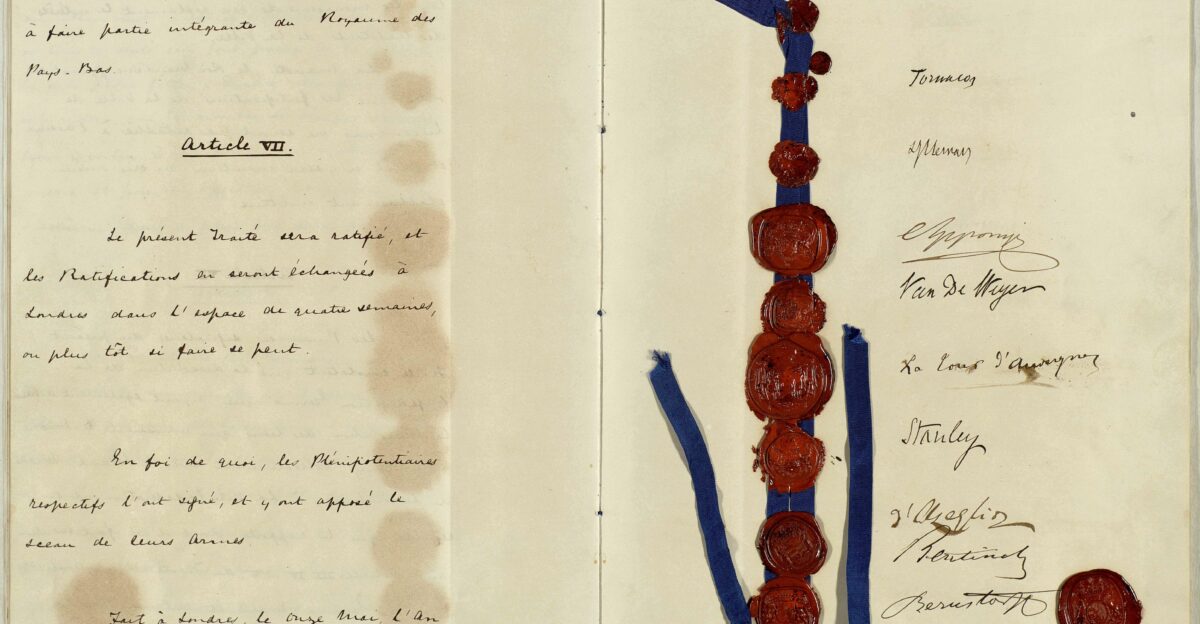 à faire partie intégrante du Royaume des
Pays-Bas.
Article VII.
Le présent Traité sera ratifié, et
les Ratifications en seront échangées à
Londres dans l'espace de quatre semaines,
ou plus tôt si faire se peut.
En foi de quoi, les Plénipotentiaires
respectifs l'ont signé, et y ont apposé le
sceau de leurs Armes.
Fait à Londres, le onze Mai, l'An
Tornaco
Servais
Apponyi
Van De Weyer
La Tour d'Auvergne
Stanley
d'Azeglio
Bentinck
Bernstorff